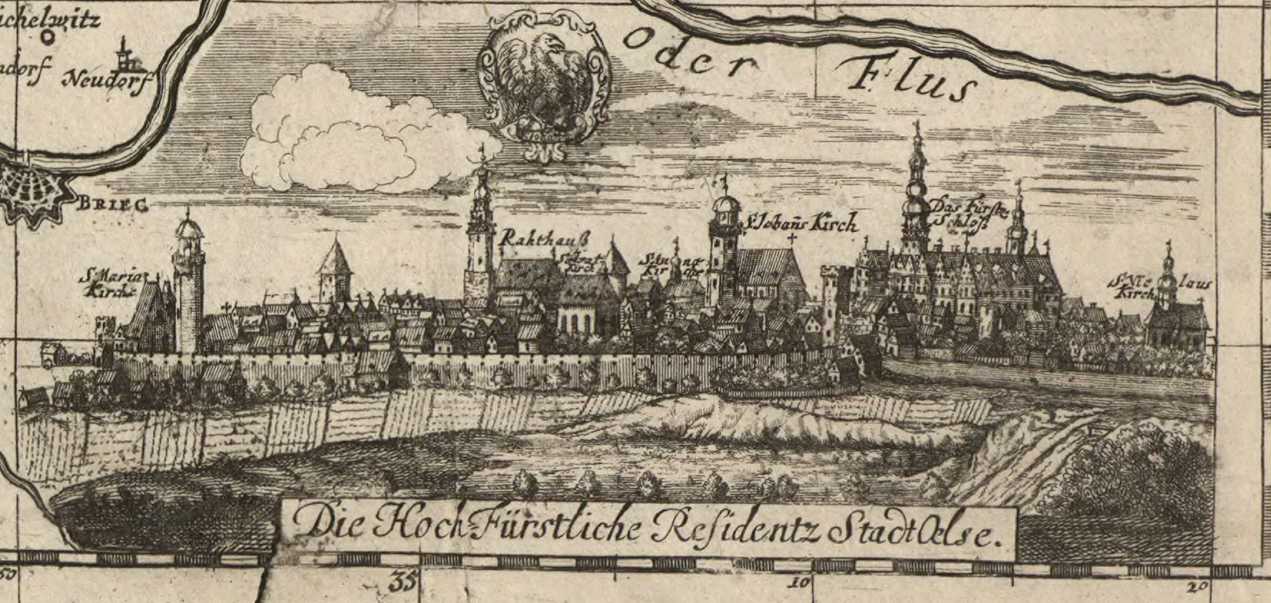 ichelwitz
dorf
Neudorf
Oder Flus
BRIEG
S. Maria
Kirche
Rahthauß
Kirch
S. Johañs Kirch
Das Fürstl.
Schloß
S. Nic laus
Kirch
Die HochFürstliche Residentz Stadt Oelse.
50
35
10
20